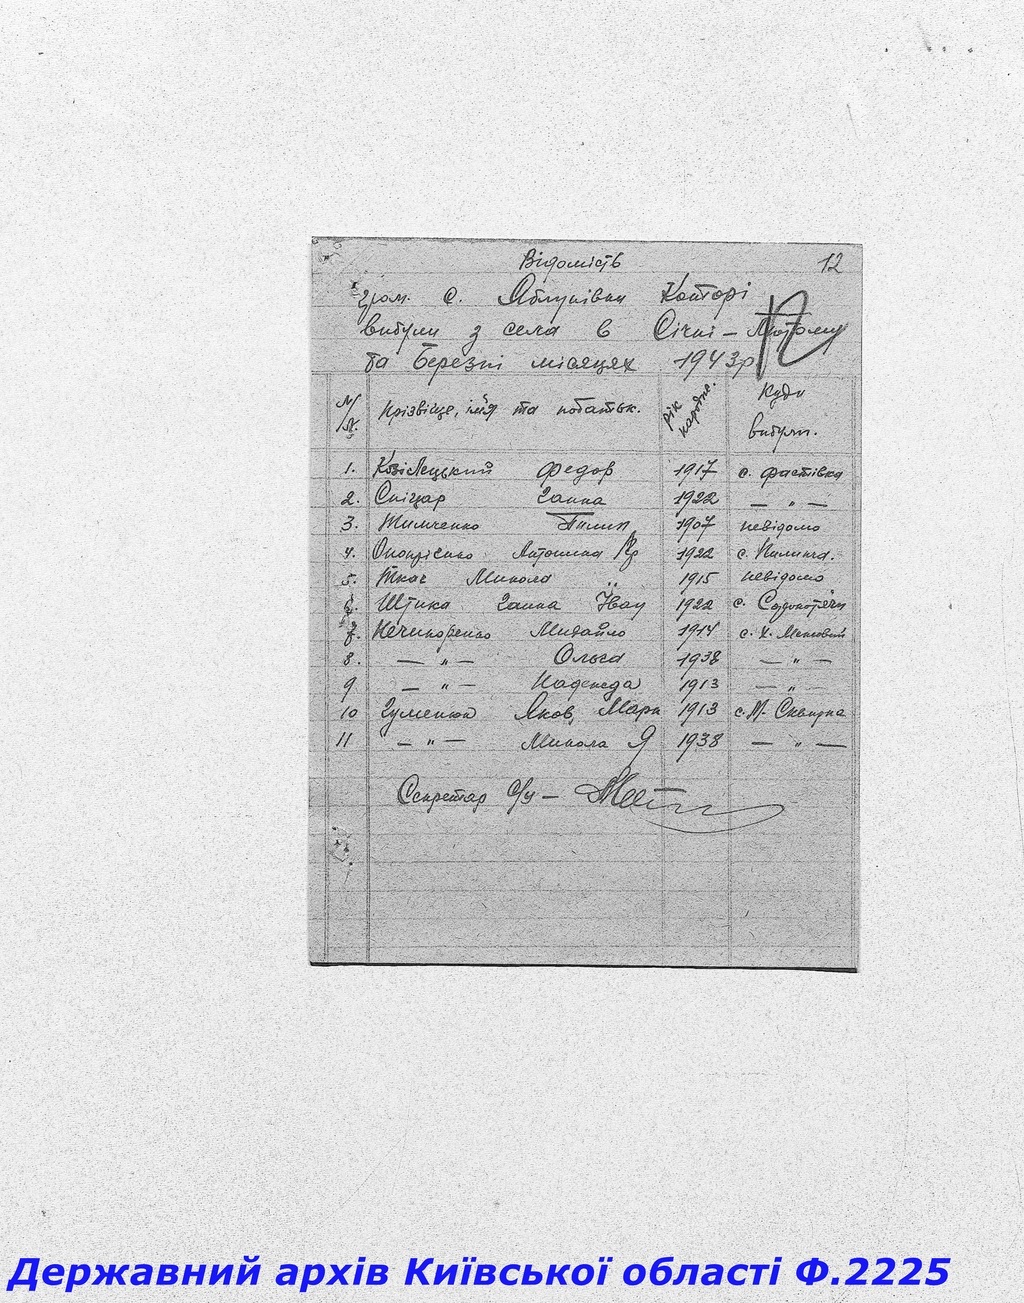 Відомість 12
гром. с. Яблунівки Которі
вибули з села в Січні – Лютому
та Березні місяцях 1943р
N/N. Прізвіще, ім'я та побатьк. рік народже. Куди вибули.
1. Козілецький Федор 1917 с. Фастівка
2. Спіцар Ганна 1922 — " —
3. Тимченко Пилип 1907 невідомо
4. Онопрієнко Антонина 1922 с. Пилипча.
5. Ткач Микола " 1915 невідомо
6. Штика Ганна Іван 1922 с.
7. Нечипоренко Михайло 1914 с.
8. — " — Ольга 1938 — " —
9 — " — Надежда 1913 — " —
10 Гуменюк Яков, Марк 1913 с. М. Сквирка
11 — " — Микола Я 1938 — " —
Секретар с/у —
Державний архів Київської області Ф.2225